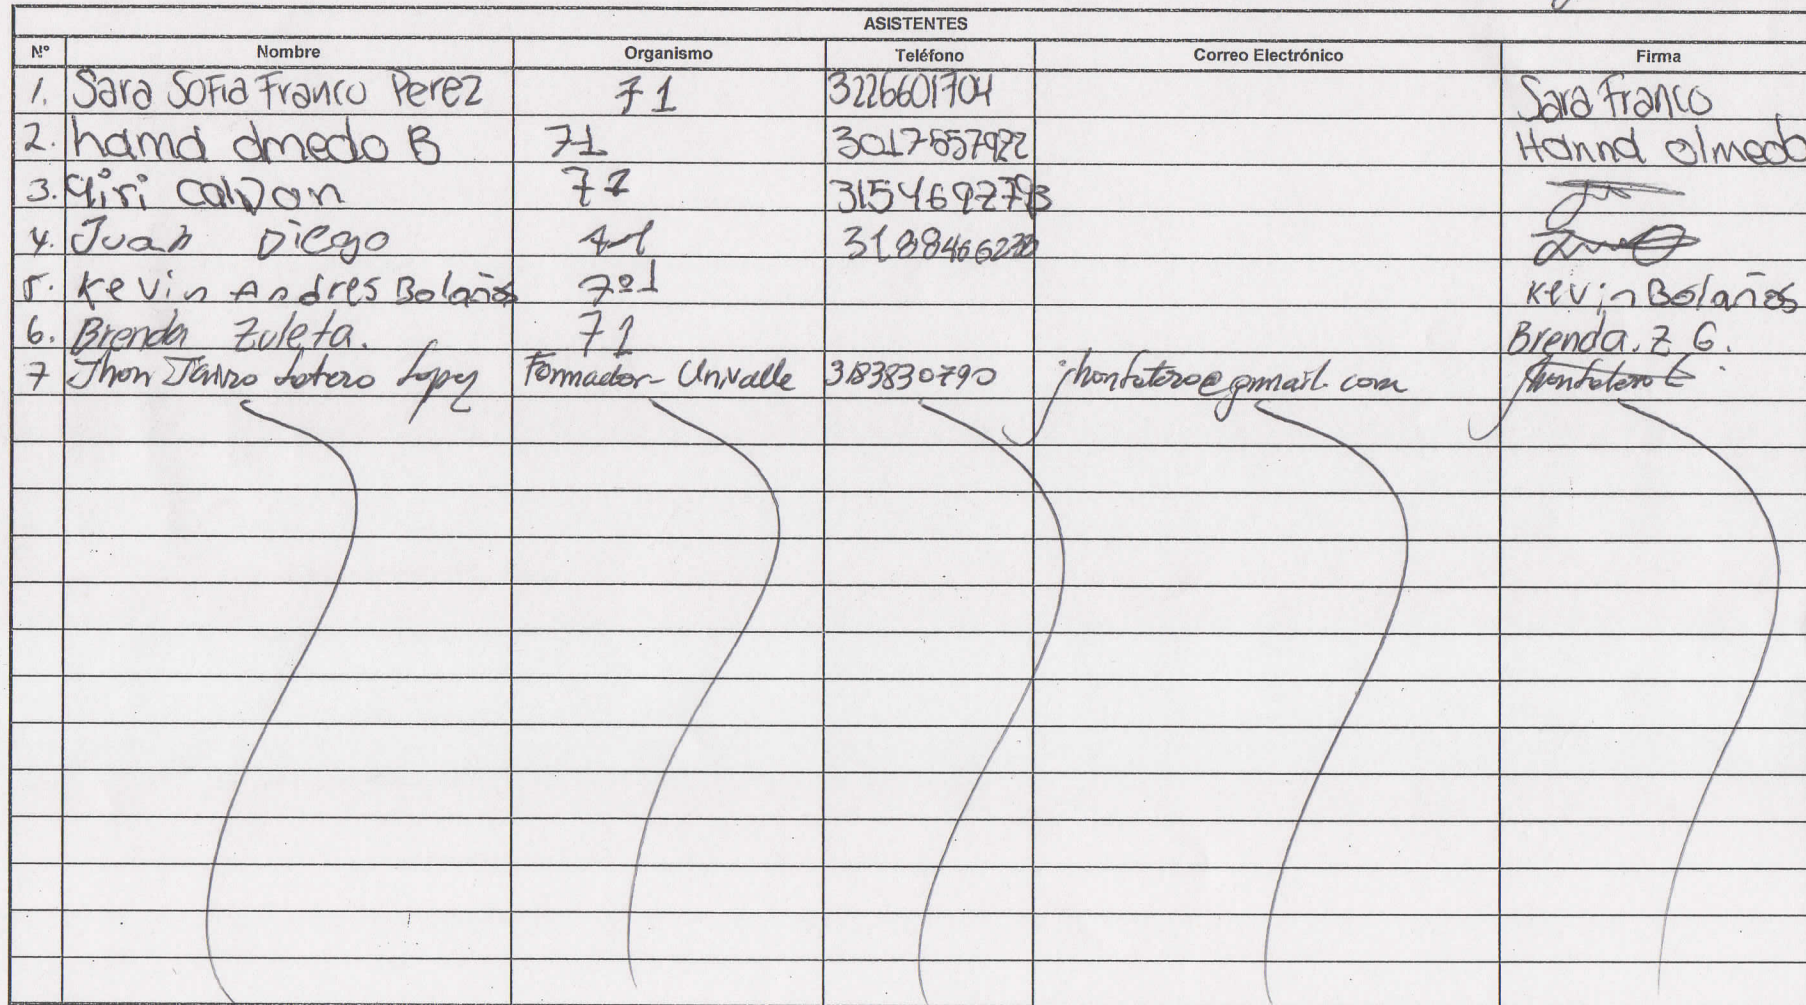 ASISTENTES
Nº Nombre Organismo Teléfono Correo Electrónico Firma
1. Sara Sofia Franco Perez 71 3226601704 Sara Franco
2. hanna olmedo B 71 3017557922 Hanna olmedo
3. 71
4. Juan Diego 71
5. Kevin Andres Bolaños 7º1 Kevin Bolaños
6. Brenda Zuleta. 71 Brenda. Z G.
7 Jhon Jairo Lotero Lopez Formador - Univalle 3183830790 jhonlotero@gmail.com